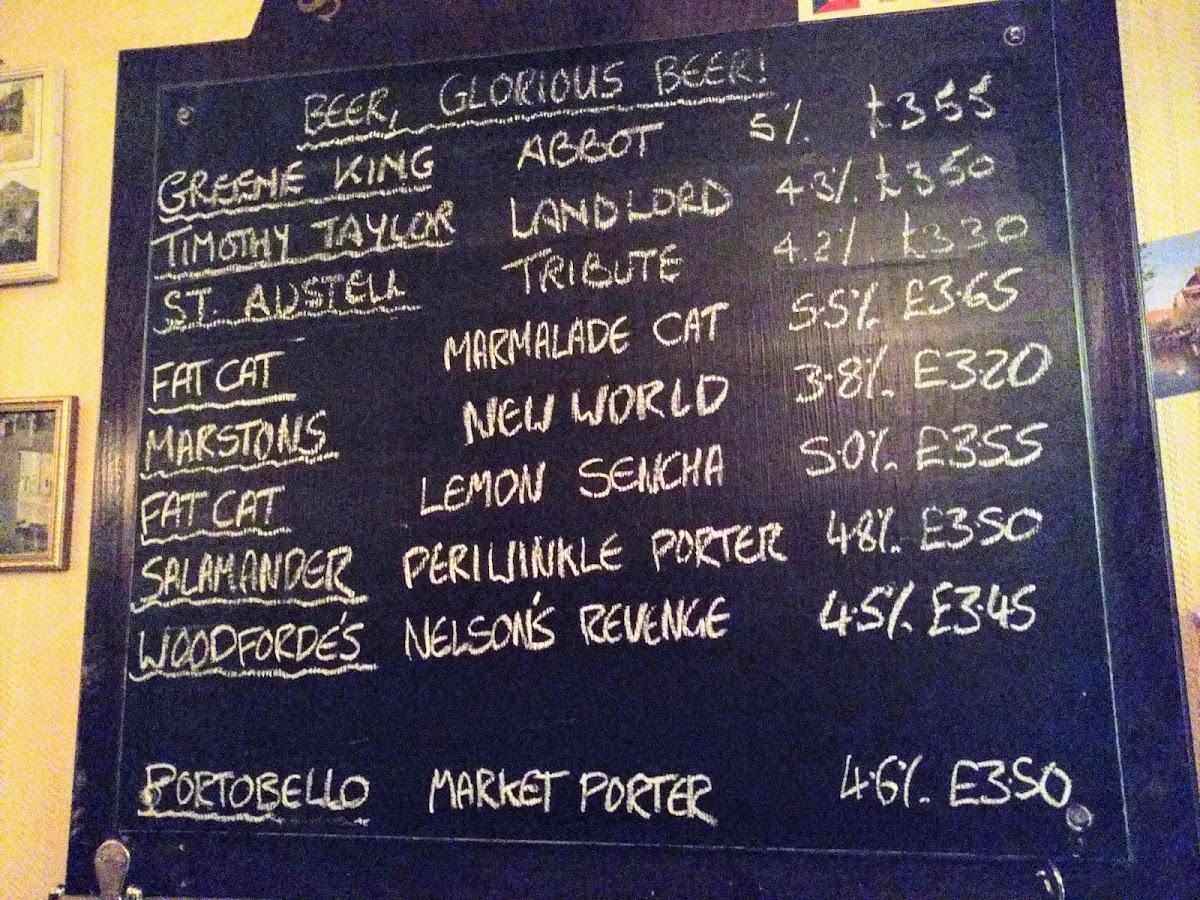 BEER, GLORIOUS BEER!
GREENE KING ABBOT 5% £3.55
TIMOTHY TAYLOR LANDLORD 4.3% £3.50
ST. AUSTELL TRIBUTE 4.2% £3.30
FAT CAT MARMALADE CAT 5.5% £3.65
MARSTONS NEW WORLD 3.8% £3.20
FAT CAT LEMON SENCHA 5.0% £3.55
SALAMANDER PERIWINKLE PORTER 4.8% £3.50
WOODFORDE'S NELSON'S REVENGE 4.5% £3.45
PORTOBELLO MARKET PORTER 4.6% £3.50